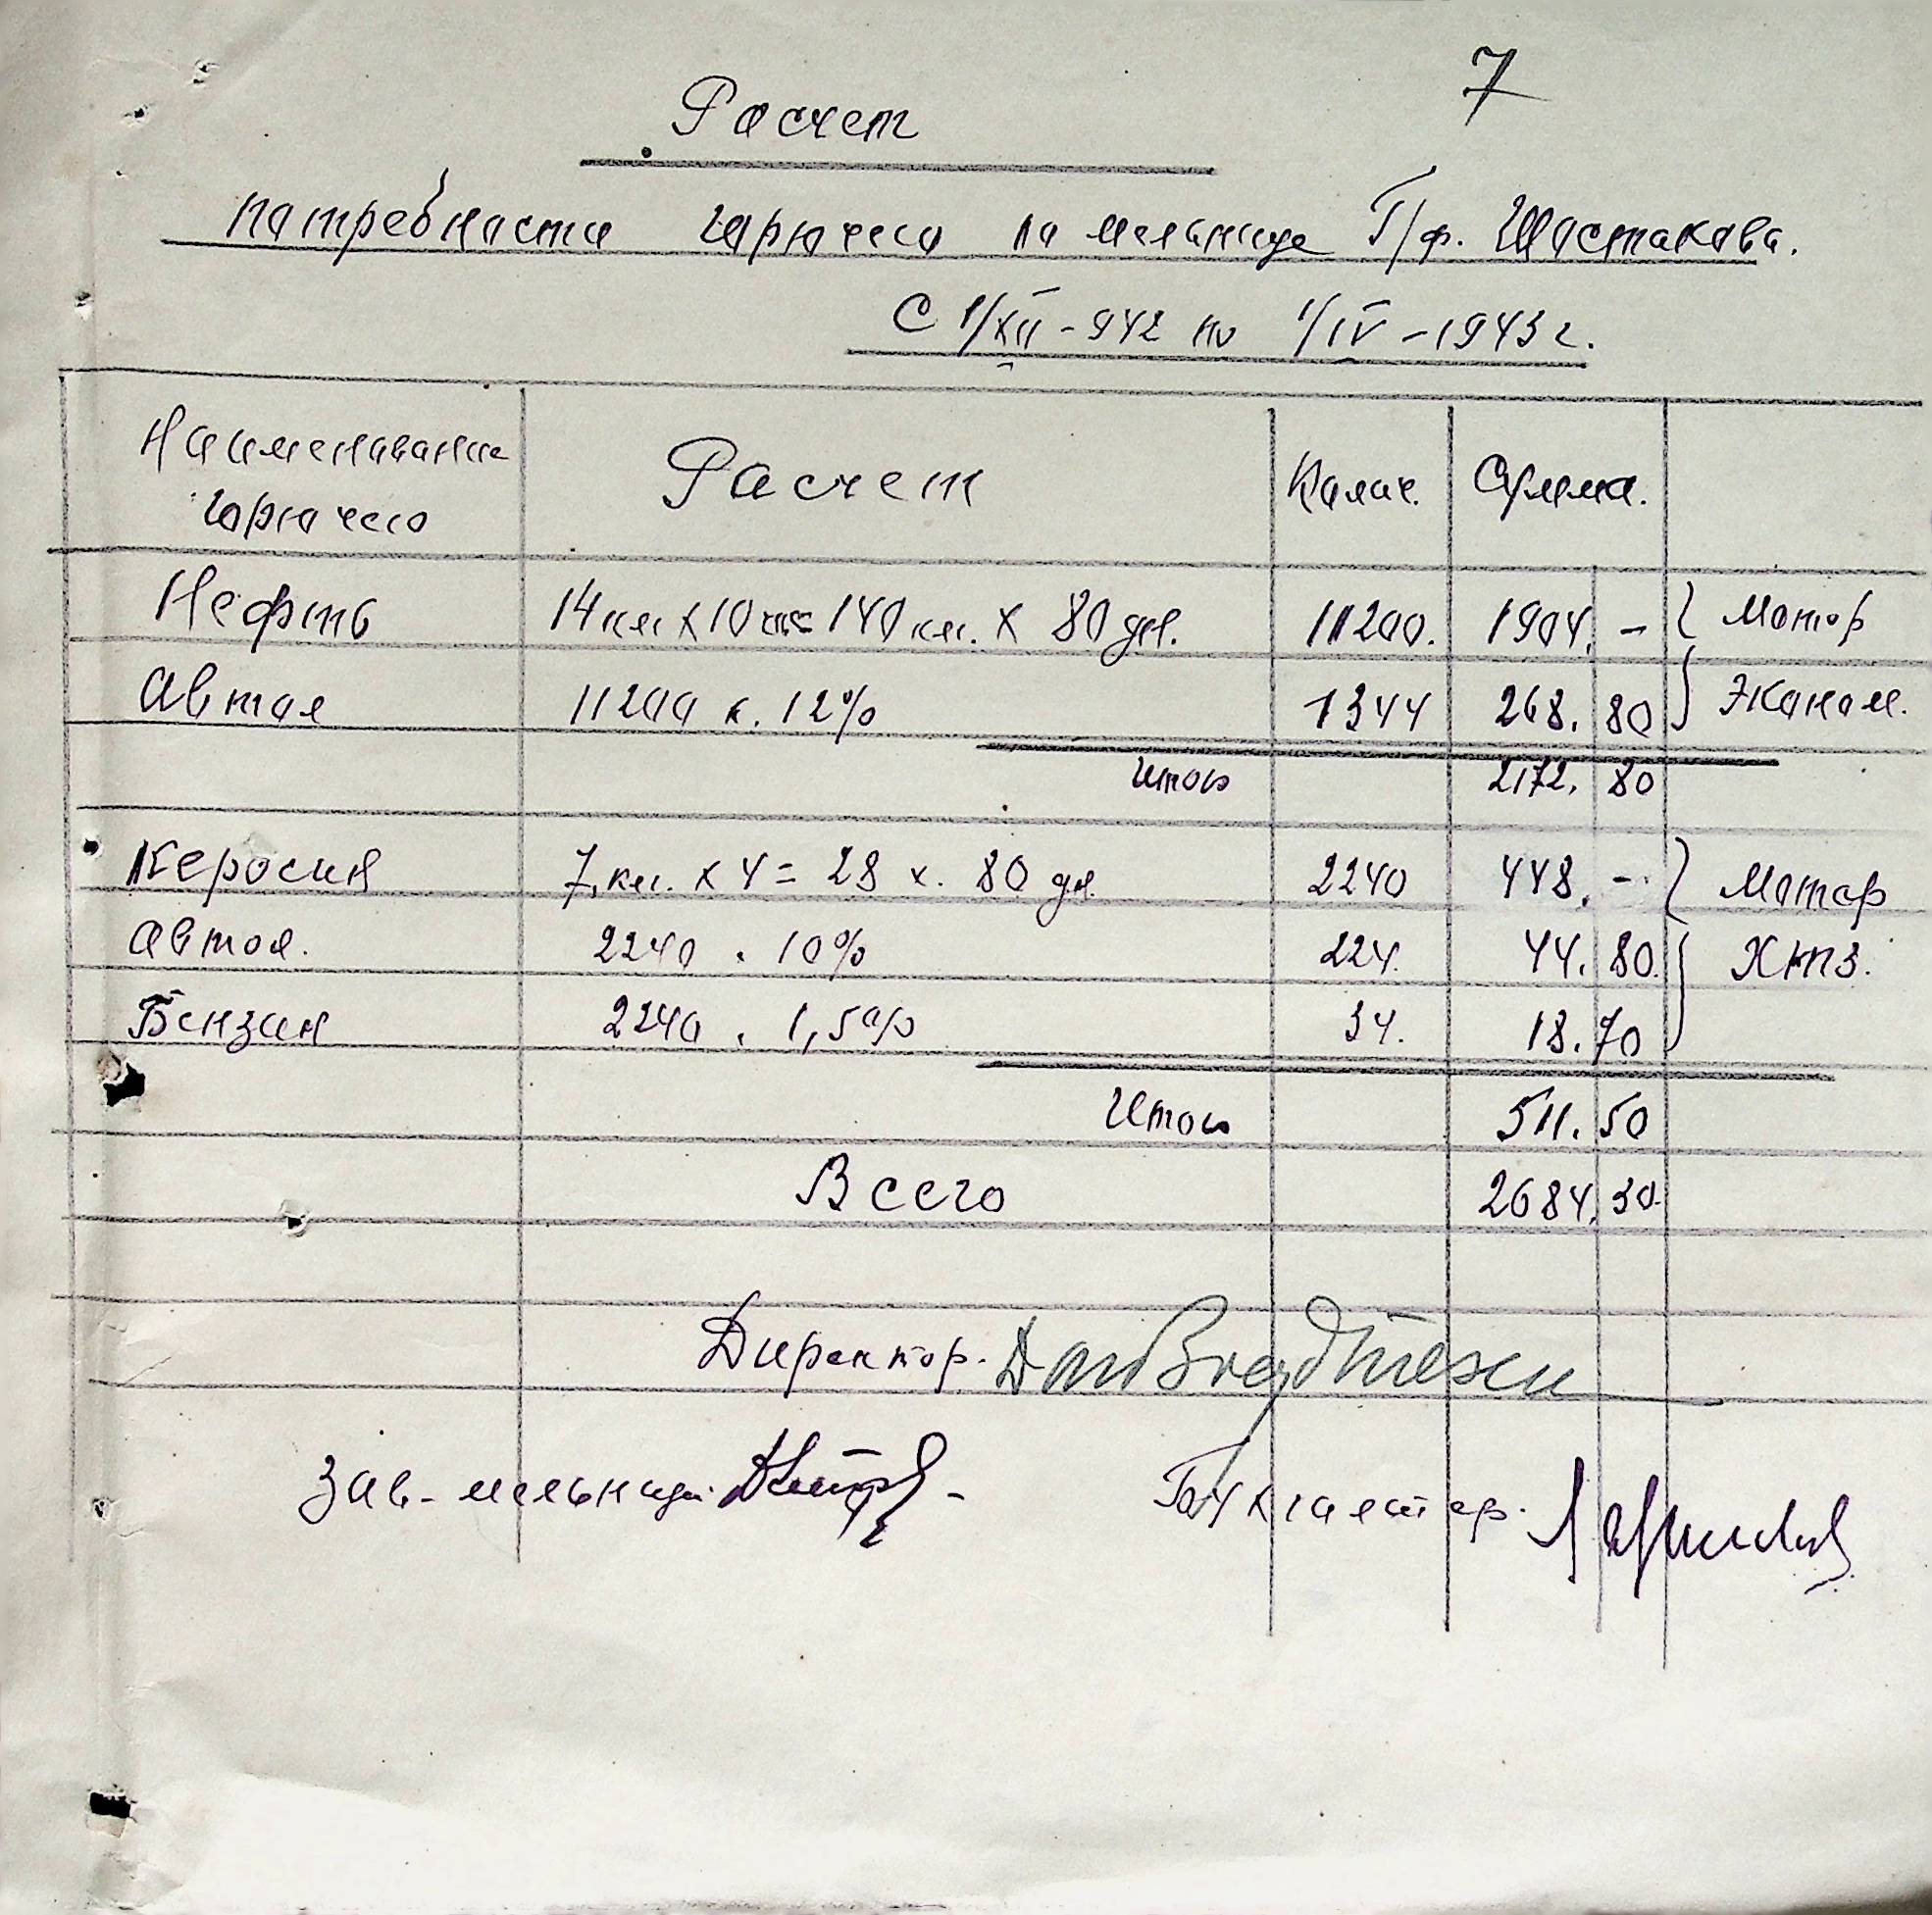 7
Расчет
потребности горючего по мельнице Г/ф. Шостакова.
С 1/XII - 942 по 1/IV - 1943 г.
Наименование горючего Расчет Колич. Сумма.
Нефть 14 кг х 10 = 140 кг. х 80 дн. 11200. 1904. - Мотор
Автол 11200 к. 12% 1344 268. 80 Эконом.
Итого 2172. 80
Керосин 7 кг. х 4 = 28 х. 80 дн. 2240 448. - Мотор
Автол. 2240 . 10% 224. 44. 80. ХТПЗ.
Бензин 2240 . 1,5% 34. 18. 70
Итого 511. 50
Всего 2684. 30
Директор.
Зав. мельницы Бухгалтер.